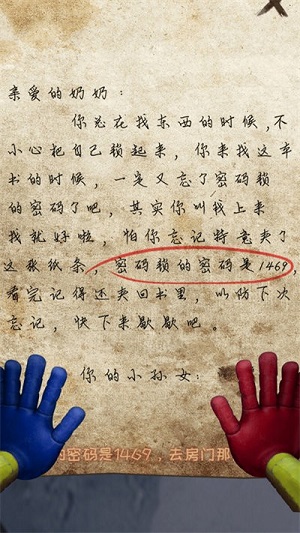 亲爱的奶奶：
你总在找东西的时候，不
小心把自己锁起来，你来找这本
书的时候，一定又忘了密码锁
的密码了吧，其实你叫我上来
找就好啦，怕你忘记特意夹了
这张纸条，密码锁的密码是1469
看完记得还夹回书里，以防下次
忘记，快下来歇歇吧。
你的小孙女：
的密码是1469，去房门那